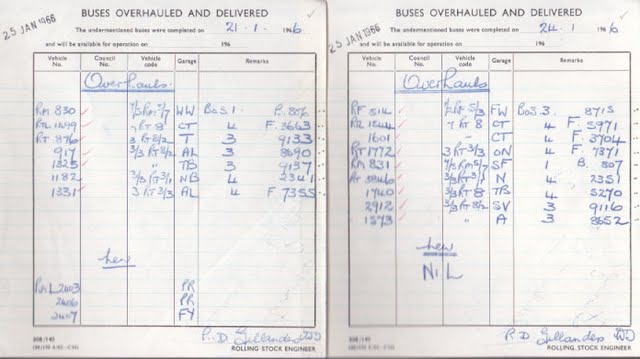 BUSES OVERHAULED AND DELIVERED
25 JAN 1966
The undermentioned buses were completed on 21 . 1 . 1966
and will be available for operation on 196
Vehicle No. Council No. Vehicle code Garage Remarks
Overhauls
RM 830 WW BOS. 1. 806
RTL 1299 7 RT 8 CT 4 F. 3663
RT 876 3 RT 8/2 T 3 9133
917 3/3 RT 3/2 AL 3 8690
1325 " TB 3 9137
1182 3/3 RT 3/1 NB 4 2341
1331 3 RT 3/3 AL F 7355
New
RML 2403 PR
2406 PR
2407 FY
R. D Gillanders
808/140
ROLLING STOCK ENGINEER
BUSES OVERHAULED AND DELIVERED
25 JAN 1966
The undermentioned buses were completed on 24 . 1 1966
and will be available for operation on 196
Vehicle No. Council No. Vehicle code Garage Remarks
Overhauls
RF 514 FW BOS. 3. 8715
RTL 1244 7 RT 8 CT 4 F. 5971
1601 " CT 4 F. 3704
RT 1772 3 RT 3/3 ON 4 F. 7371
RM 831 SF 1 B. 807
RT 3/1 N 4 2351
1740 3/3 RT 8 TB 4 5270
2912 3/3 RT 8/2 SV 3 9116
1573 " A 3 8652
New
NIL
R. D Gillanders
808/140
ROLLING STOCK ENGINEER